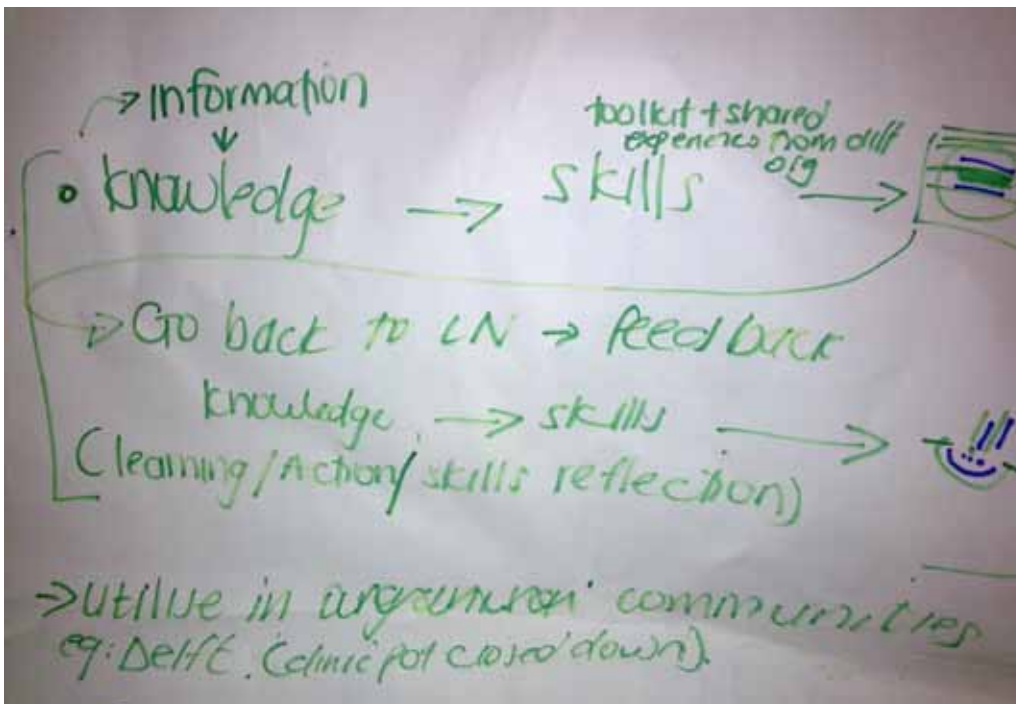 → Information
↓
• knowledge → skills →
toolkit + shared
experiences from diff
org
→ Go back to LN → feedback
knowledge → skills →
(learning/Action/skills reflection)
→ utilise in communities
eg: Delft. (clinic closed down).